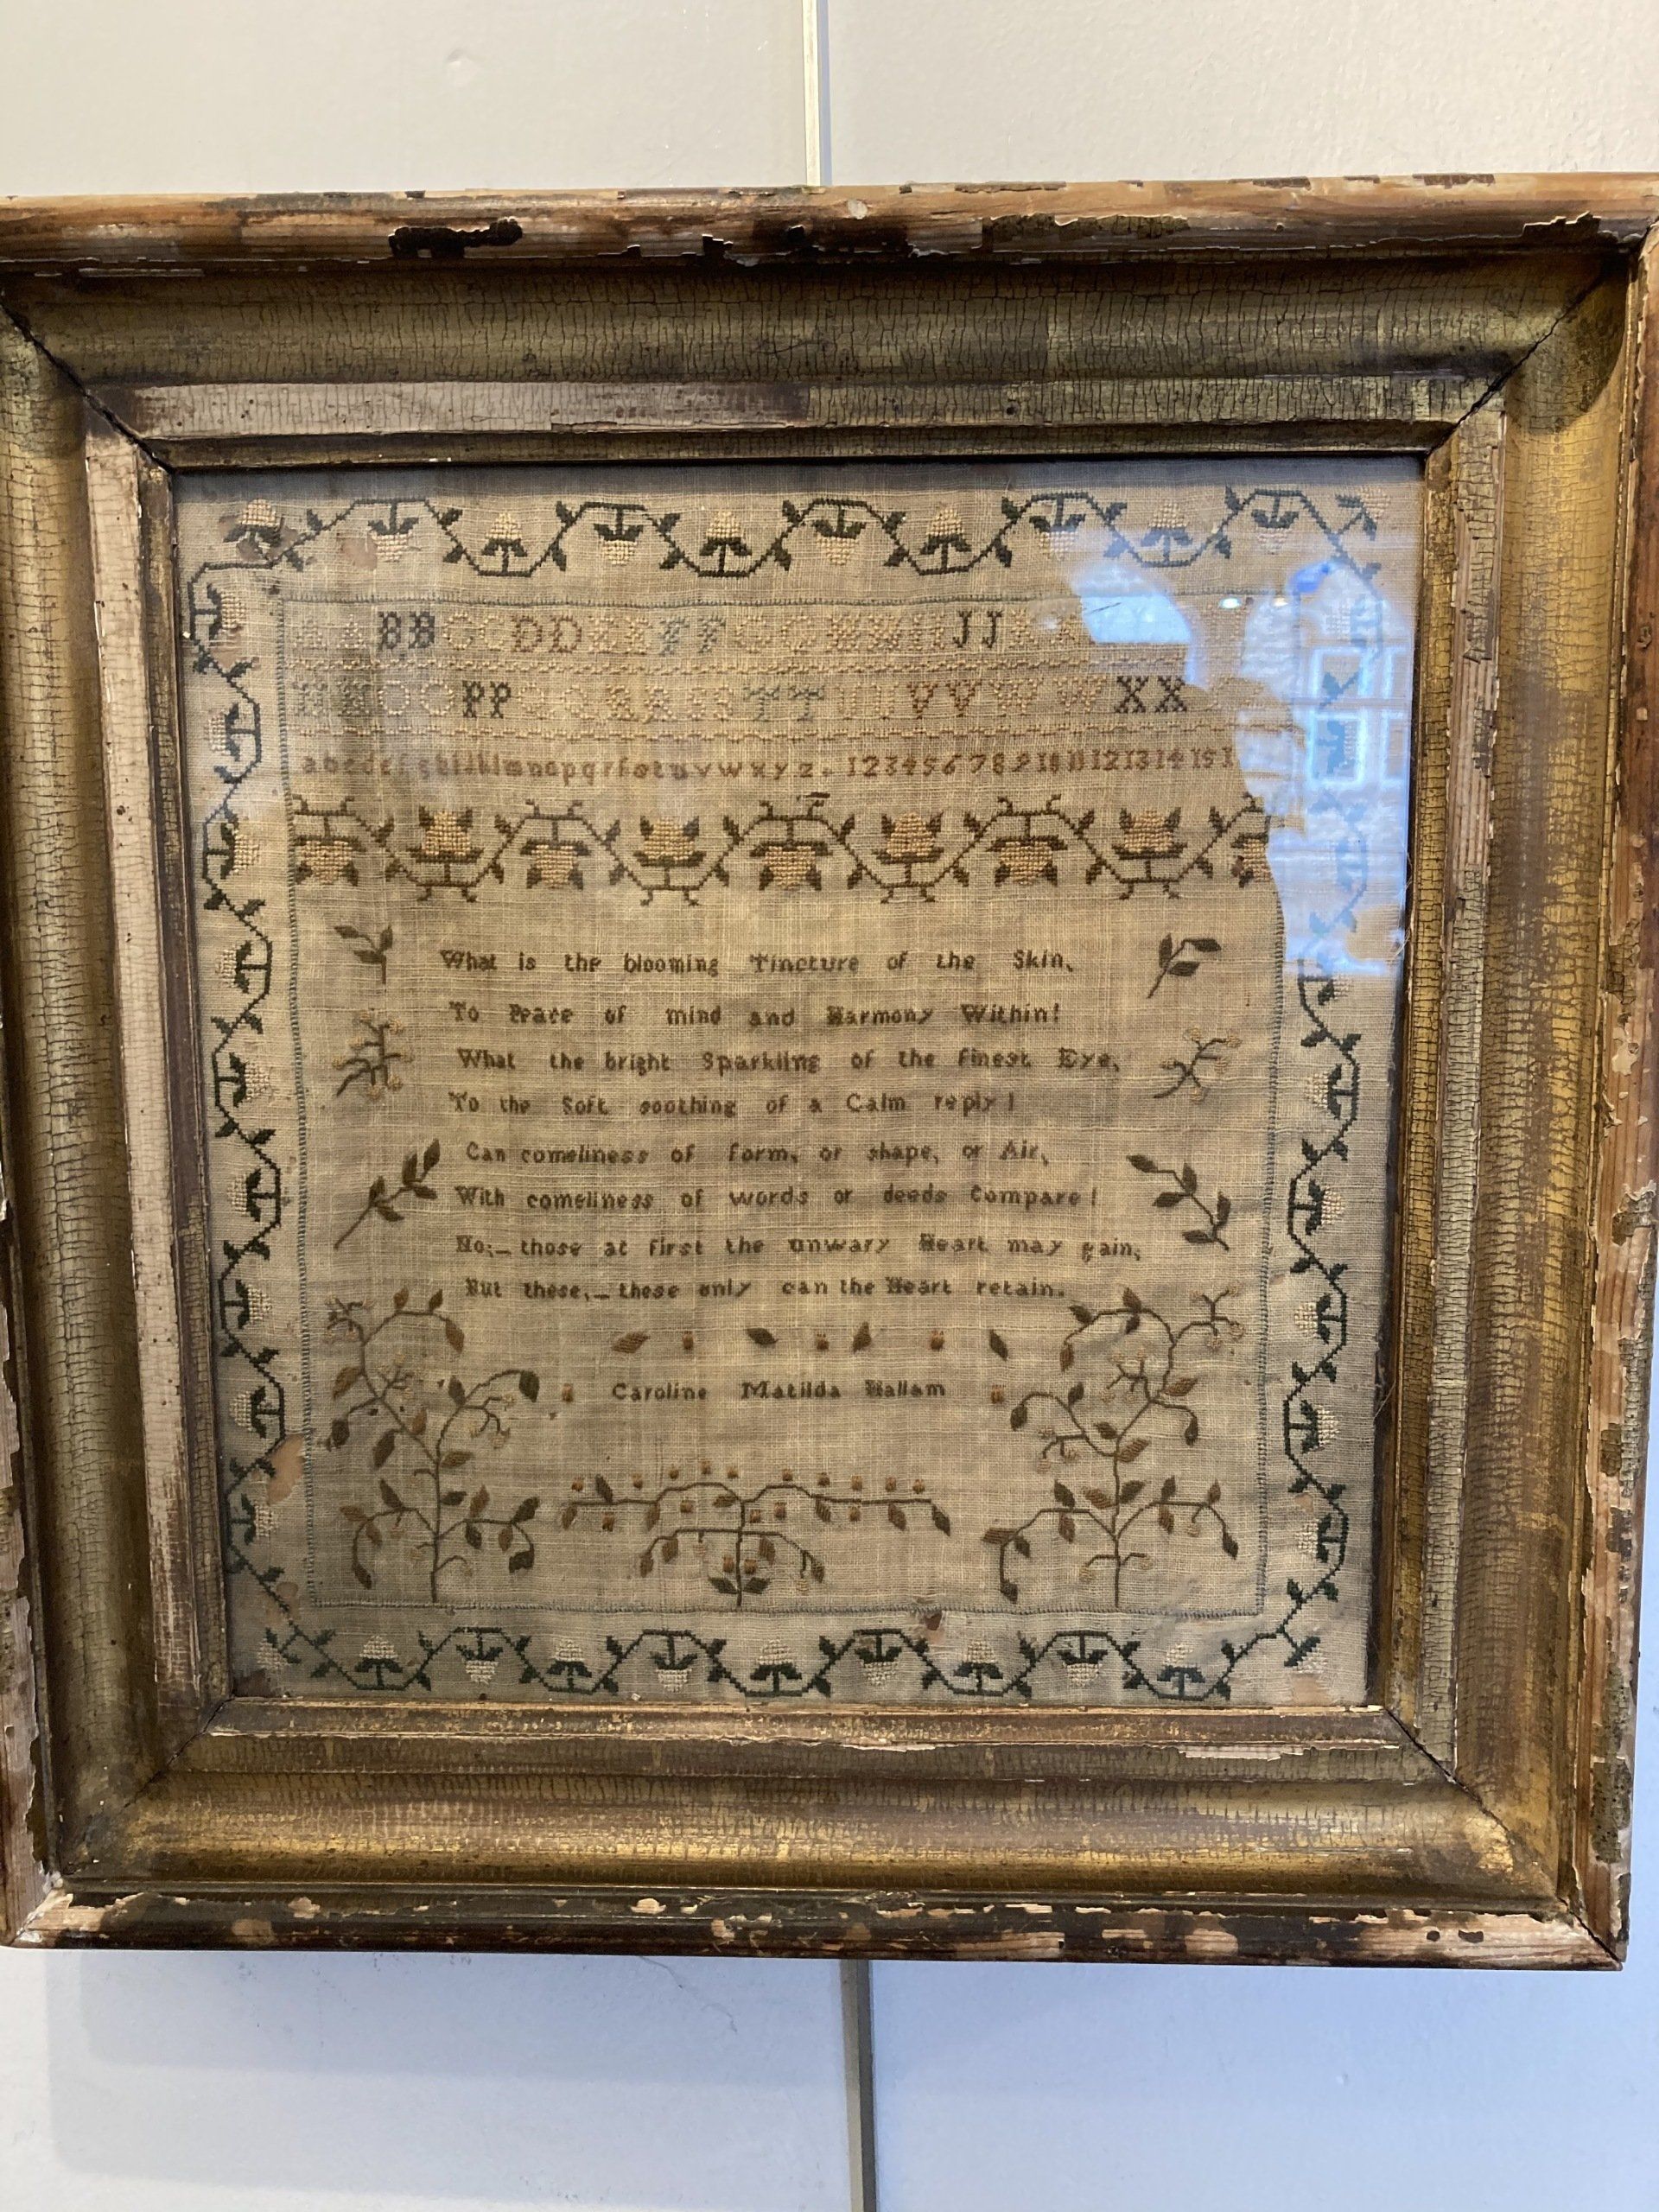 A A B B C C D D E E F F G G H H I I J J K K
N N O O P P Q Q R R S S T T U U V V W W X X
a b c d e f g h i j k l m n o p q r s t u v w x y z . 1 2 3 4 5 6 7 8 9 10 11 12 13 14 15 1
What is the blooming Tincture of the Skin,
To Peace of mind and Harmony Within!
What the bright Sparkling of the finest Eye,
To the Soft soothing of a Calm reply!
Can comeliness of form, or shape, or Air,
With comeliness of words or deeds Compare!
No;– those at first the unwary Heart may gain,
But these,– these only can the Heart retain.
Caroline Matilda Hallam